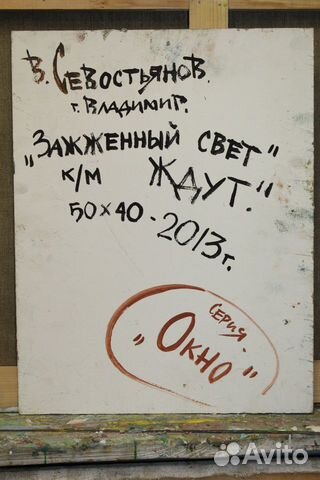 В. Севостьянов.
г. Владимир.
"Зажженный свет"
к/м Ждут."
50×40 - 2013 г.
серия.
"Окно"
Avito